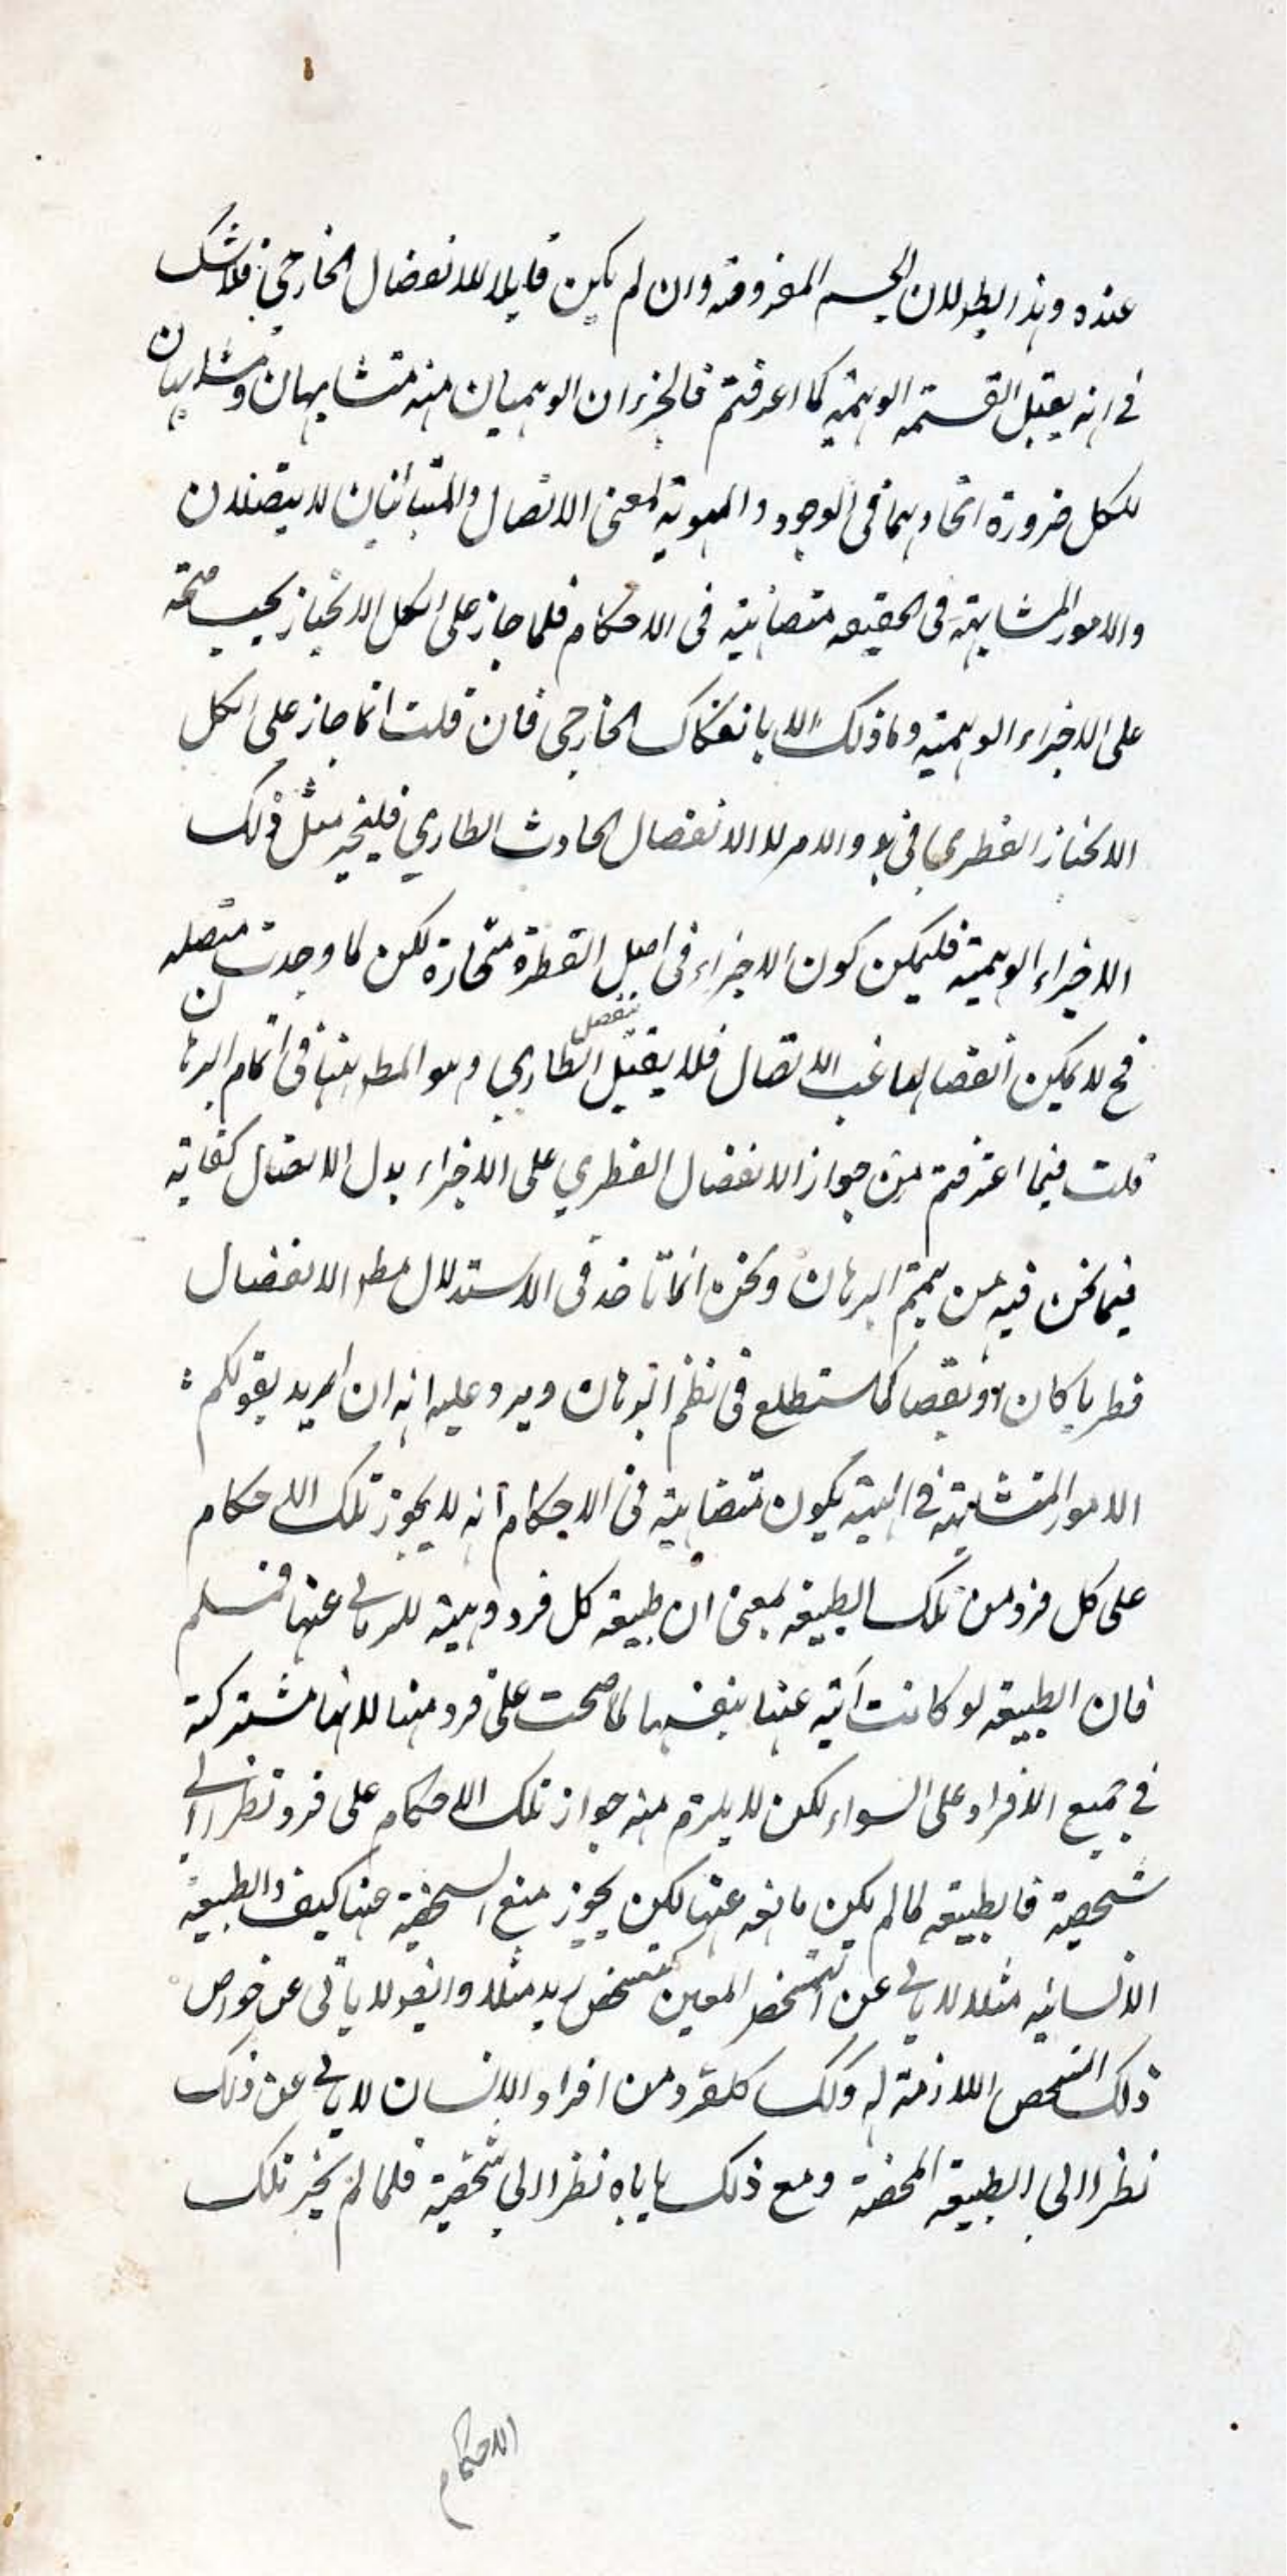 عنده وهذا بطولان الجسم المفروقه وان لم يكن قابلا للانفصال الخارجي فلا شك
في انه يقبل القسمة الوهمية كما اعرفتم فالجزءان الوهميان منه متشابهان ومشابهان
للكل ضرورة اتحادهما في الوجود والهوية لمعنى الاتصال والمتبائنان لا يتصلان
والامور المتشابهة في الحقيقه متضاهية في الاحكام فلما جاز على الكل الانحياز يجب صحته
على الاجزاء الوهمية وما ذلك الا بانفكاك الخارجي فان قلت انما جاز على الكل
الانحياز الفطري في بدو الامر لا الانفصال الحادث الطاري فليجز مثل ذلك
الاجزاء الوهمية فليكن كون الاجزاء في اصل الفطرة منحازة لكن لما وجدت متصله
فح لا يمكن انفصالها غب الاتصال فلا يقبل المنفصل الطاري وهو المطلوب ههنا في اتمام البرهان
قلت فيما اعترفتم من جواز الانفصال الفطري على الاجزاء بدل الاتصال كفاية
فيما نحن فيه من تتميم البرهان ونحن انما ناخذ في الاستدلال مطلق الانفصال
فطريا كان او نقصا كما ستطلع في نظم البرهان ويرد عليه انه ان اريد بقولكم
الامور المتشابهة في الهية يكون متضاهية في الاحكام انه لا يجوز تلك الاحكام
على كل فرد من تلك الطبيعة بمعنى ان طبيعة كل فرد وهيته لا ياب عنها فمسلم
فان الطبيعة لو كانت آبية عنها بنفسها لما صحت على فرد منها لانها مشتركة
في جميع الافراد على السواء لكن لا يلزم منه جواز تلك الاحكام على فرد نظرا الى
شخصية فالطبيعة لما لم يكن مانعه عنها لكن يجوز منع الشخصية عنها كيف والطبيعة
الانسانيه مثلا لا يابى عن التشخص المعين كتشخص زيد مثلا وايضا لا يابى عن خواص
ذلك الشخص اللازمة له وكك كل فرد من افراد الانسان لا يابى عن ذلك
نظرا الى الطبيعة المحضة ومع ذلك ياباه نظرا الى شخصية فلما لم يجز تلك
الاحكام